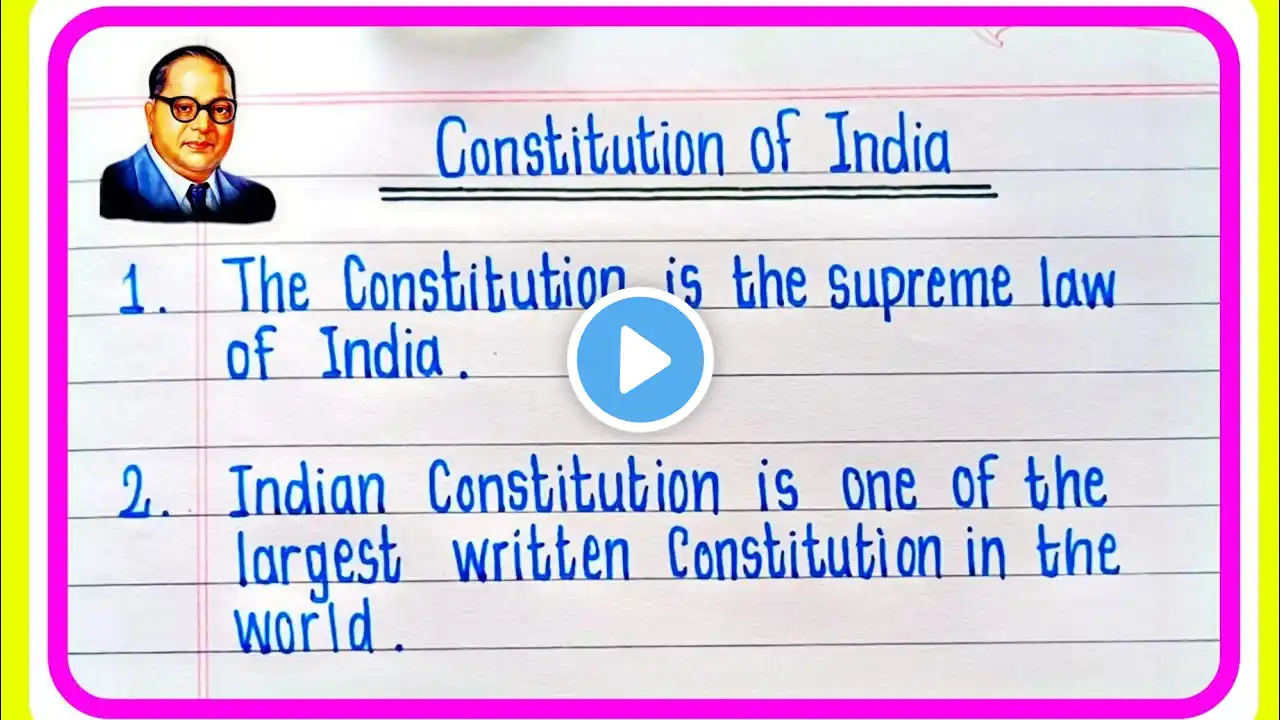 Constitution of India
1. The Constitution is the supreme law
of India.
2. Indian Constitution is one of the
largest written Constitution in the
world.